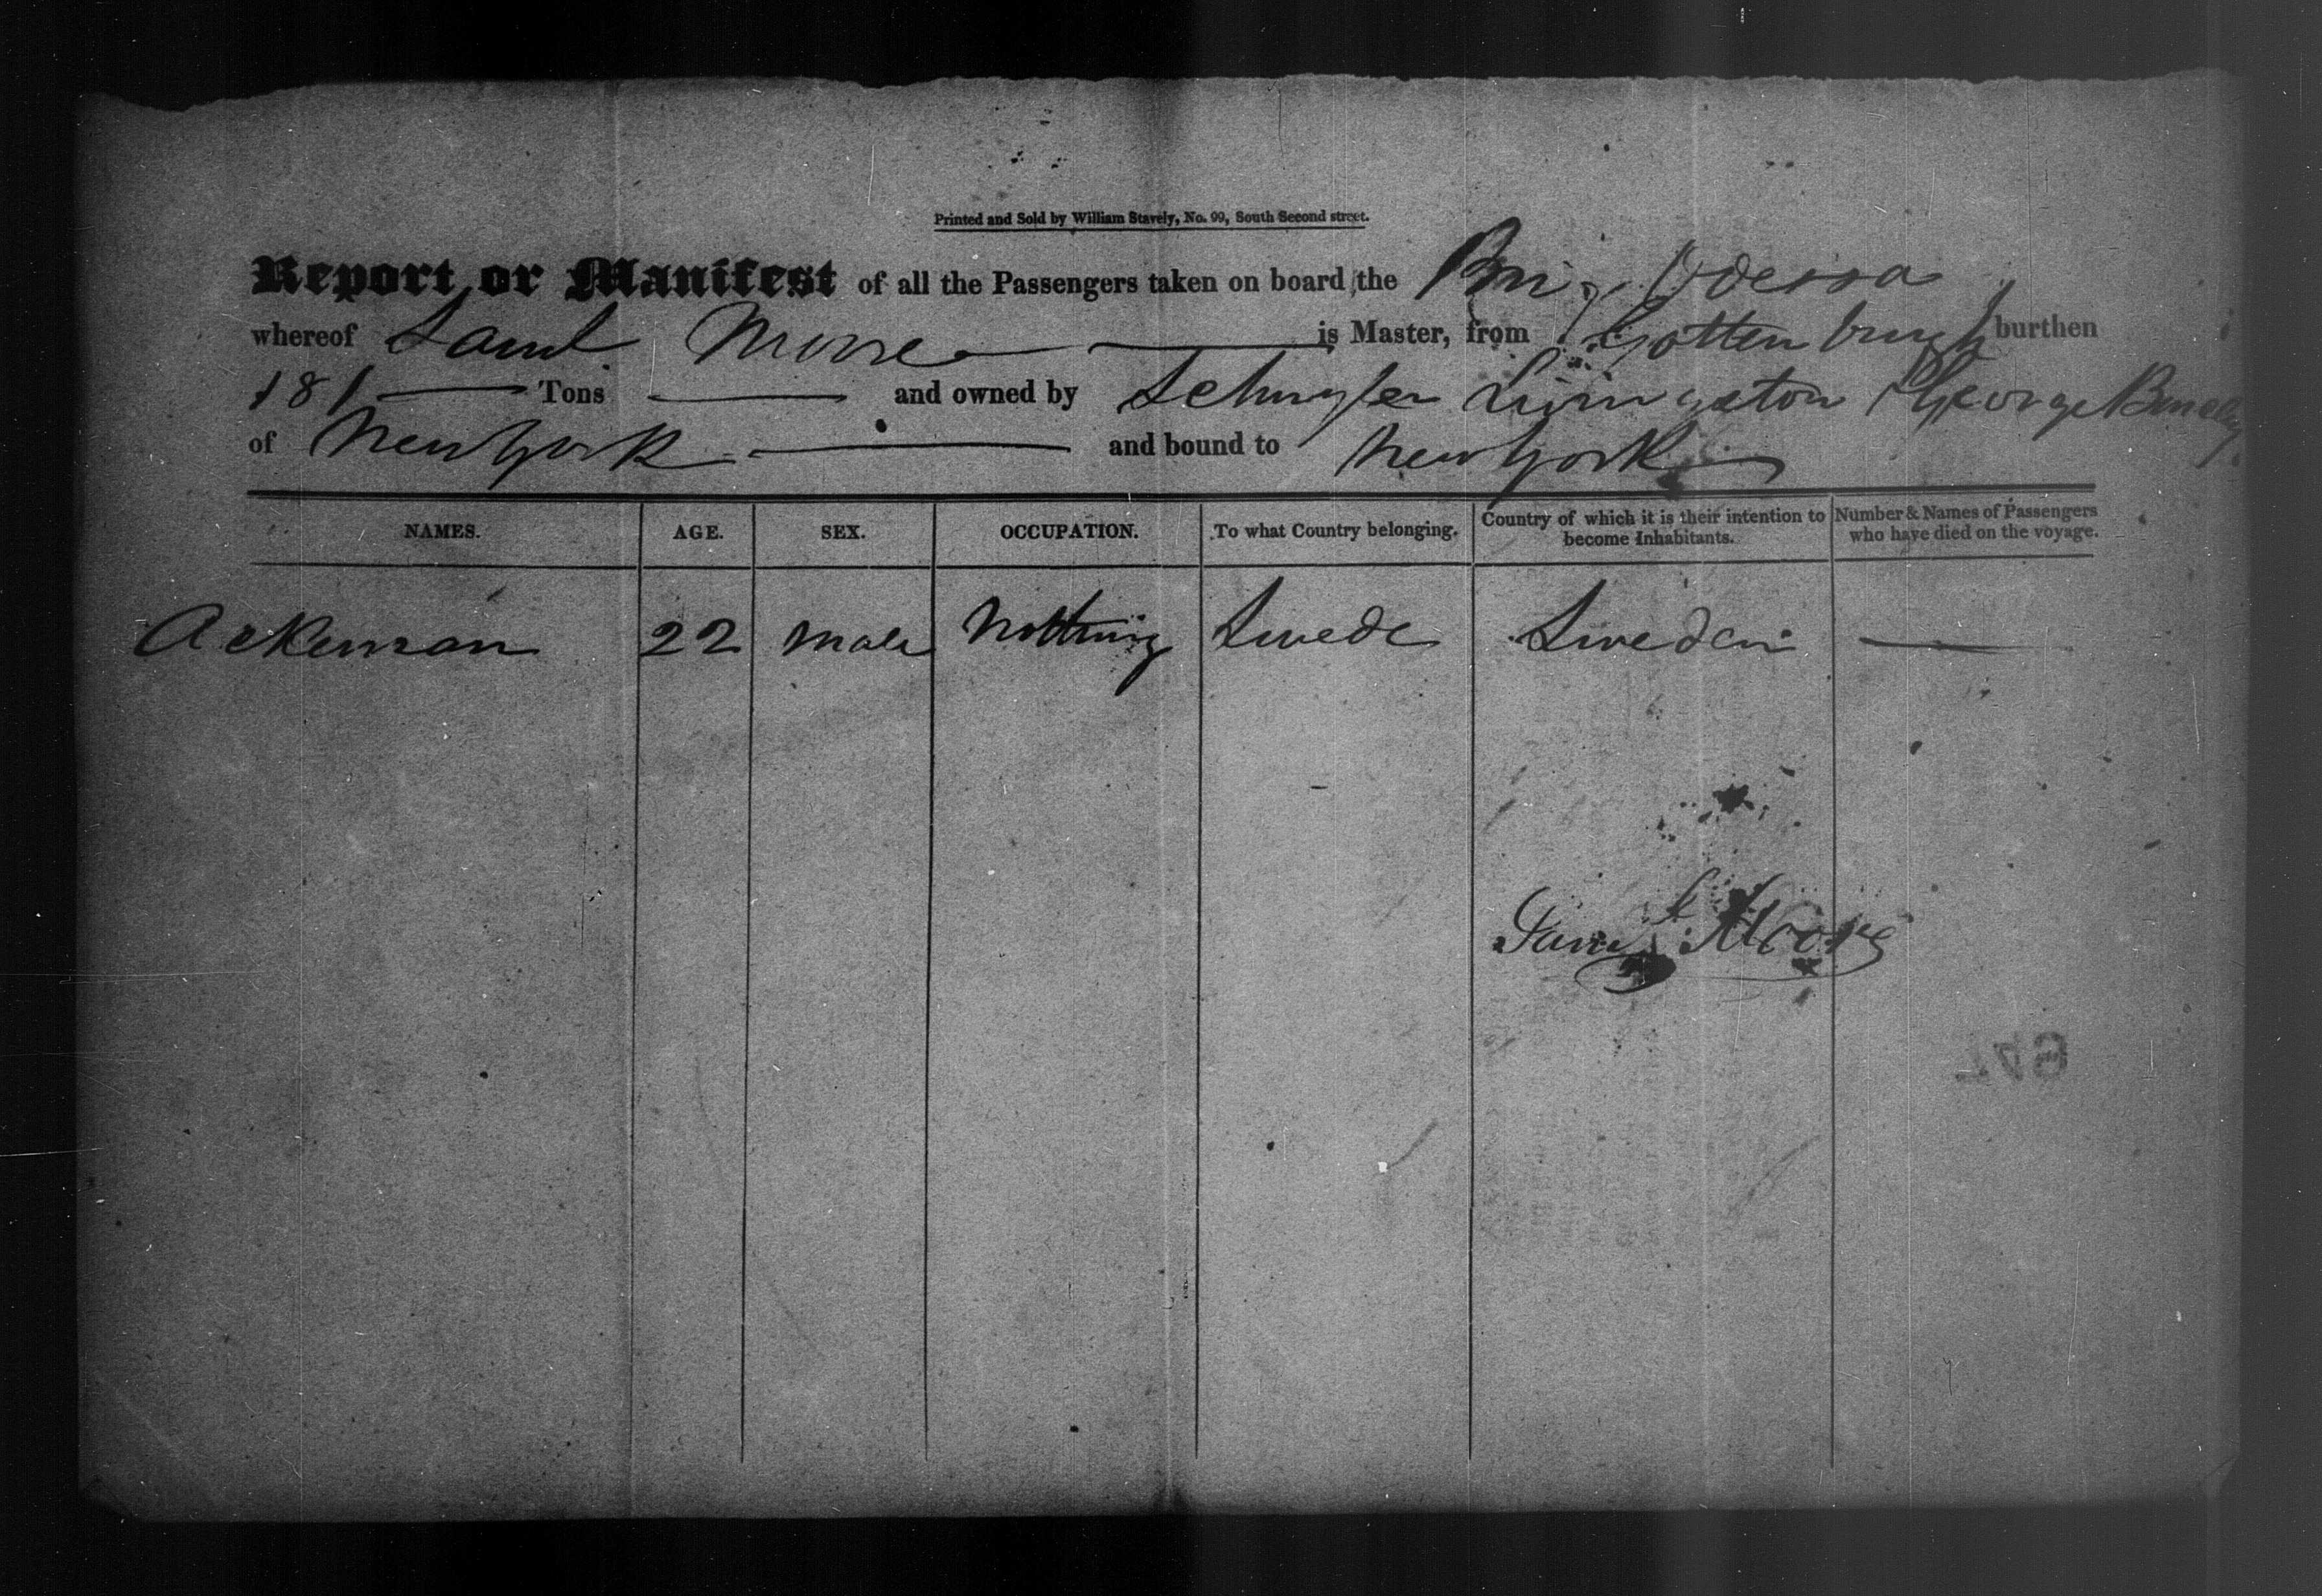 Printed and Sold by William Stavely, No. 99, South Second street.
Report or Manifest of all the Passengers taken on board the Brig Odessa
whereof Saml Moore is Master, from Gottenburgh burthen
181 Tons and owned by Schuyler Livingston & George
of New York and bound to New York
NAMES. AGE. SEX. OCCUPATION. To what Country belonging. Country of which it is their intention to become Inhabitants. Number & Names of Passengers who have died on the voyage.
Ackerman 22 male Nothing Swede Sweden —
Saml Moore